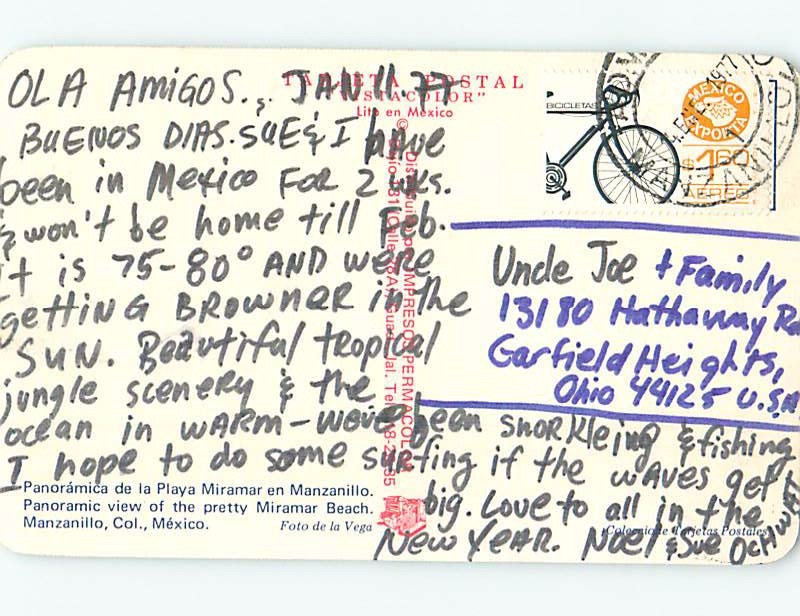 TARJETA POSTAL
"VISTACOLOR"
Lito en México
OLA AMIGOS., JAN 11. 77
BUENOS DIAS. SUE & I HAVE
been in Mexico FOR 2 wks.
& won't be home till Feb.
it is 75-80° AND were
getting BROWNER in the
SUN. Beautiful tropical
jungle scenery & the
ocean in WARM-weve been snorkleing & fishing
I hope to do some surfing if the waves get
big. Love to all in the
New Year. Noel & Sue
BICICLETAS
MEXICO
EXPORTA
$1.60
AEREO
1977
Uncle Joe + Family
13180 Hathaway Rd
Garfield Heights,
Ohio 44125 U.S.A
Panorámica de la Playa Miramar en Manzanillo.
Panoramic view of the pretty Miramar Beach.
Manzanillo, Col., México.
Foto de la Vega
IMPRESOS PERMACOLOR
Colección de Tarjetas Postales